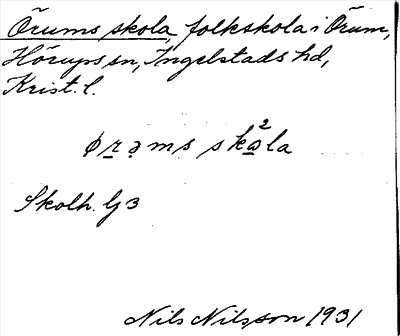 Örums skola, folkskola i Örum,
Hörups sn, Ingelstads hd,
Krist. l.
ørəms skɑ²la
Skolh. G3
Nils Nilsson 1931